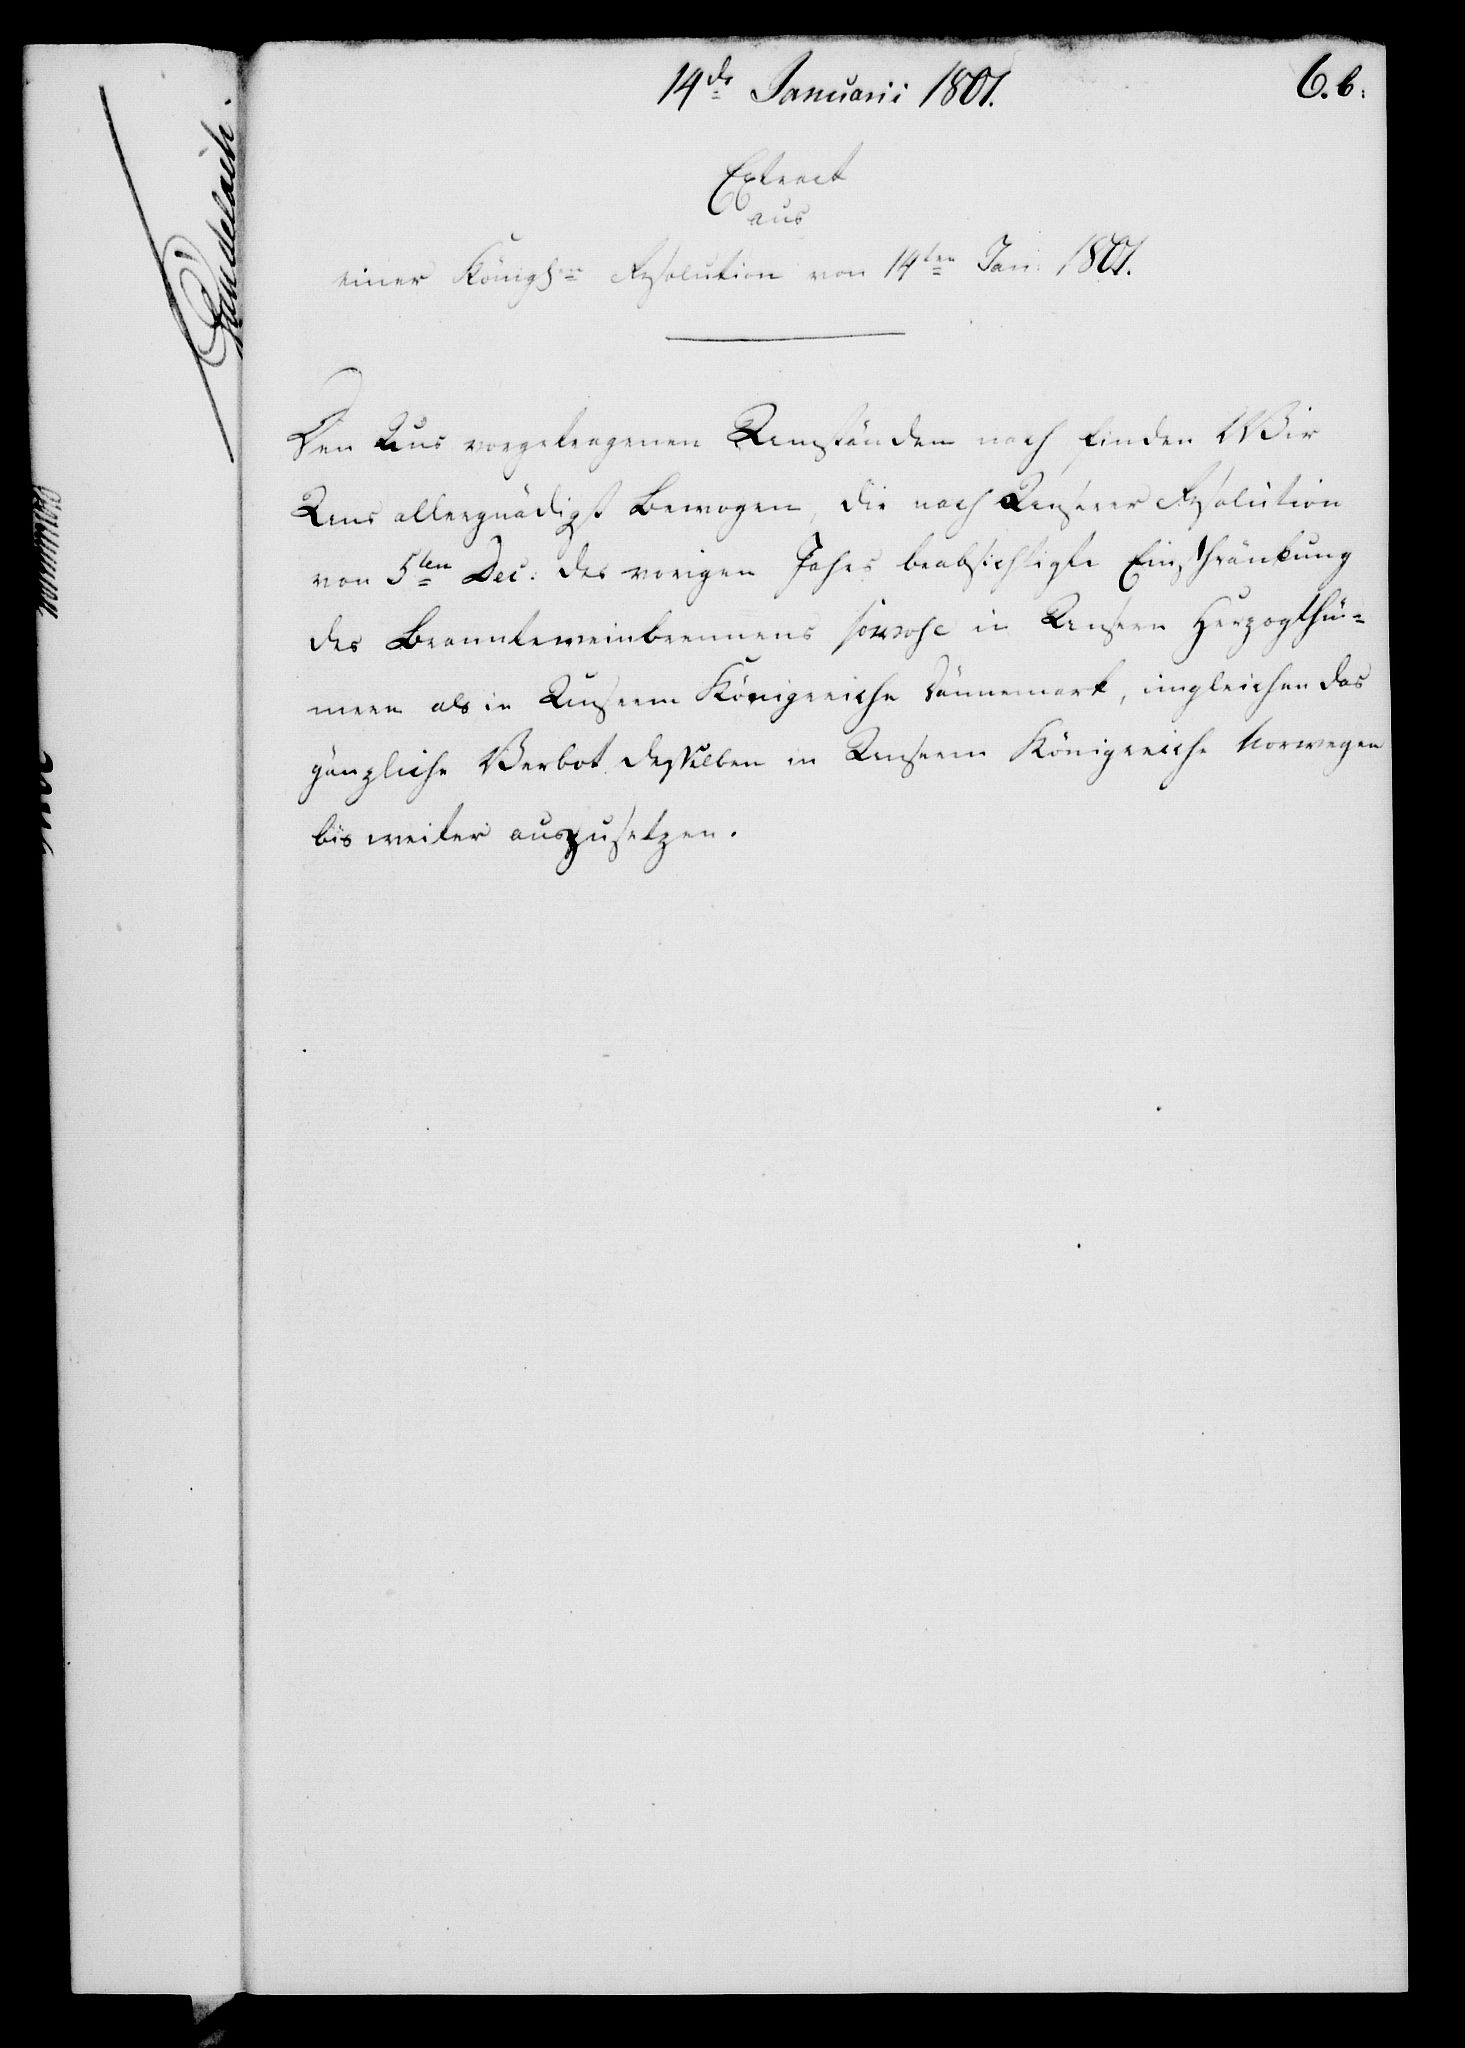 14de Januarii 1801.
6.b.
Extract
aus
einer Königlen Resolution von 14ten Jan: 1801.
Den Uns vorgetragenen Umständen nach finden Wir
Uns allergnädigst bewogen, die nach Unserer Resolution
von 5ten Dec: des vorigen Jahrs beabsichtigte Einschränkung
des Branntweinbrennens sowohl in Unsern Herzogthü-
mern als in Unserm Königreiche Dännemark, imgleichen das
gänzliche Verbot desselben in Unserm Königreiche Norwegen
bis weiter auszusetzen.